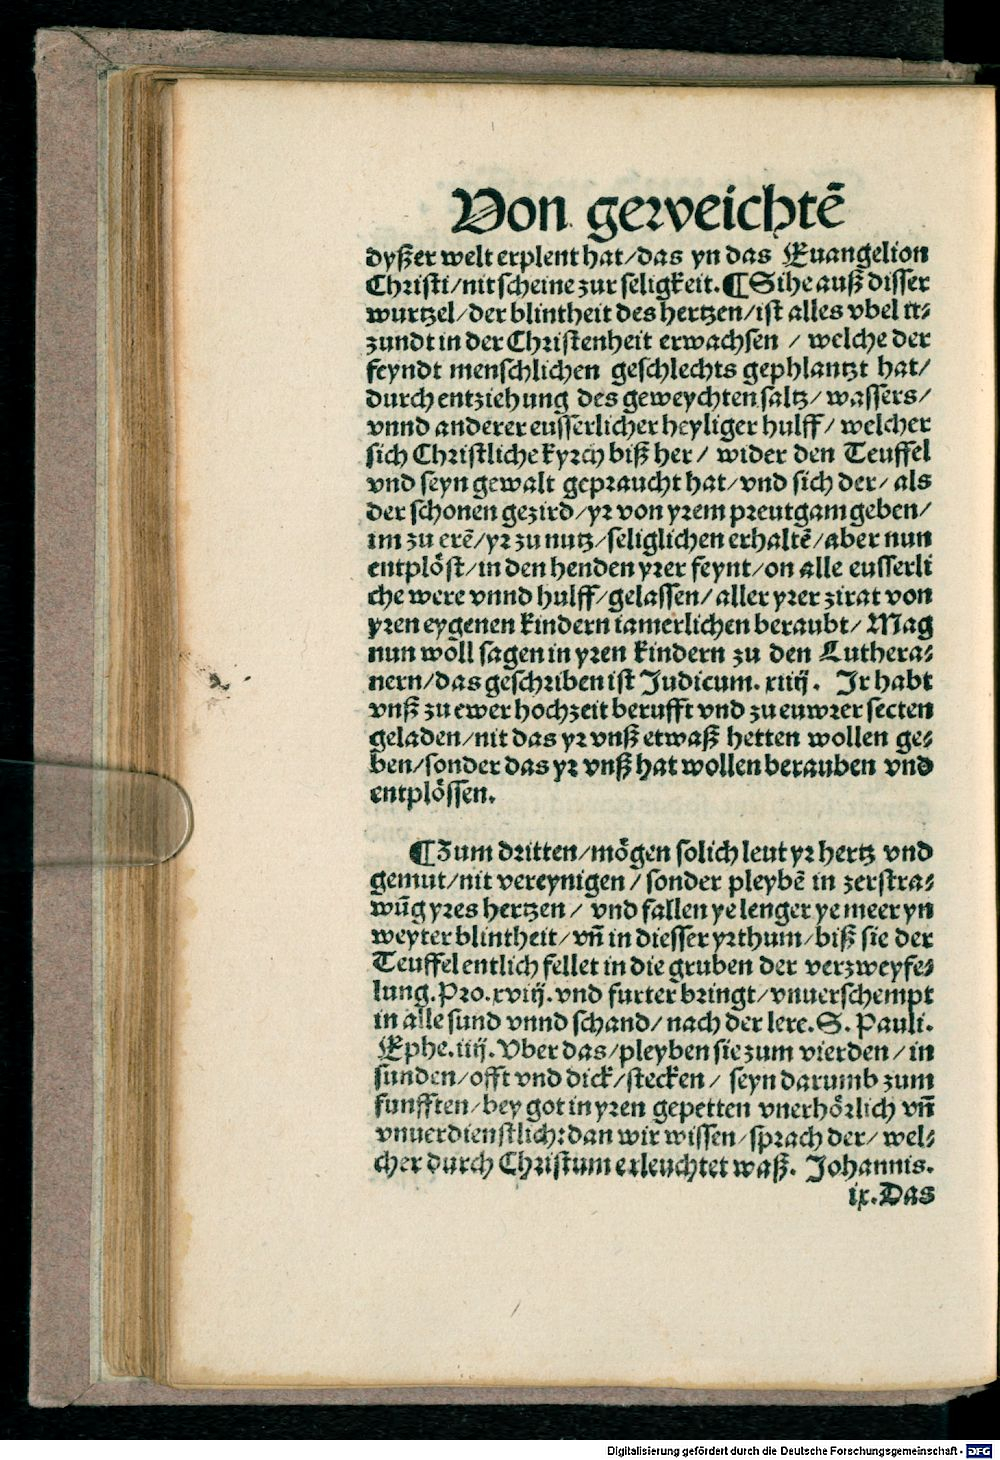 Von geweichtē
dyßer welt erplent hat/das yn das Euangelion
Christi/nit scheine zur seligkeit.¶Sihe auß disser
wurtzel/der blintheit des hertzen/ist alles vbel itz⸗
zundt in der Christenheit erwachsen / welche der
feyndt menschlichen geschlechts gephlantzt hat/
durch entziehung des geweychten saltz/wassers/
vnnd anderer eusserlicher heyliger hulff/ welcher
sich Christliche kyrch biß her/ wider den Teuffel
vnd seyn gewalt gepraucht hat/vnd sich der/ als
der schonen gezird/yr von yrem preutgam geben/
im zu erē/yr zu nutz/seliglichen erhaltē/aber nun
entplöst/in den henden yrer feynt/on alle eusserli
che were vnnd hulff/gelassen/aller yrer zirat von
yren eygenen kindern iamerlichen beraubt/ Mag
nun woll sagen in yren kindern zu den Luthera⸗
nern/das geschriben ist Judicum.xiiij. Jr habt
vnß zu ewer hochzeit berufft vnd zu euwrer secten
geladen/nit das yr vnß etwaß hetten wollen ge⸗
ben/sonder das yr vnß hat wollen berauben vnd
entplössen.
¶Zum dritten/mögen solich leut yr hertz vnd
gemut/nit vereynigen/sonder pleybē in zerstra⸗
wūg yres hertzen/ vnd fallen ye lenger ye meer yn
weyter blintheit/vn̄ in diesser yrthum/biß sie der
Teuffel entlich fellet in die gruben der verzweyfe⸗
lung.Pro.xviij.vnd furter bringt/vnuerschempt
in alle sund vnnd schand/nach der lere.S.Pauli.
Ephe.iiij.Vber das/pleyben sie zum vierden/in
sunden/offt vnd dick/stecken/ seyn darumb zum
funfften/bey got in yren gepetten vnerhörlich vn̄
vnuerdienstlich:dan wir wissen/sprach der/wel⸗
cher durch Christum erleuchtet waß. Johannis.
ix.Das
Digitalisierung gefördert durch die Deutsche Forschungsgemeinschaft - DFG